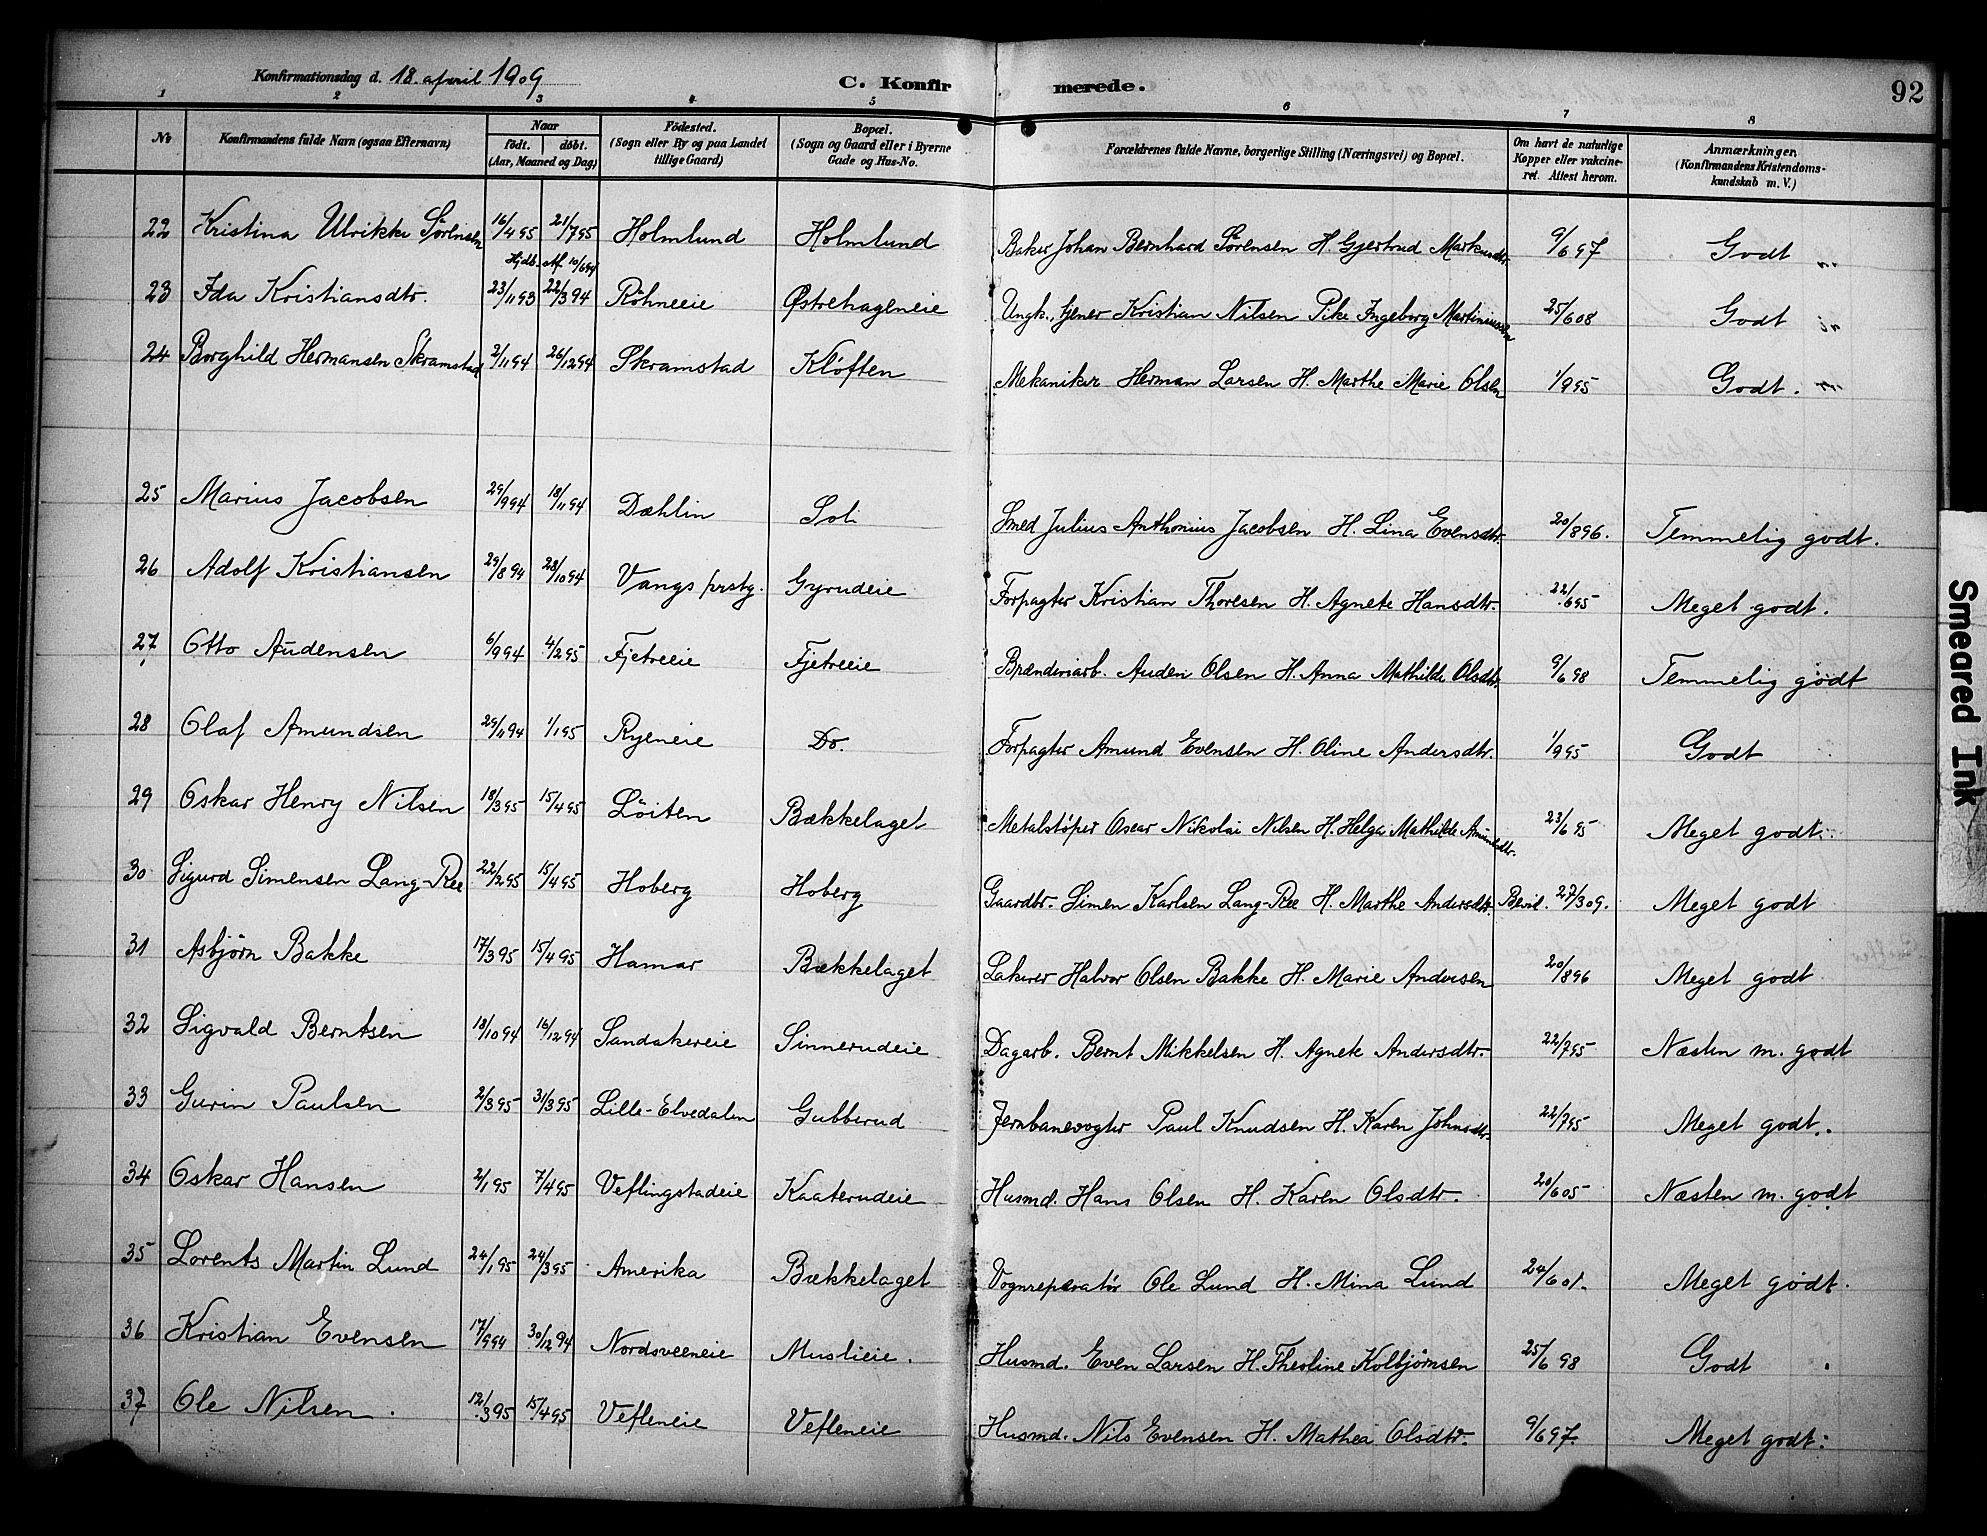 Konfirmationsdag d. 18. april 1909
C. Konfirmerede.
92
1 2 3 4 5 6 7 8
No
Konfirmandens fulde Navn (ogsaa Efternavn)
Naar
født. døbt.
(Aar, Maaned og Dag)
Fødested.
(Sogn eller By og paa Landet
tillige Gaard)
Bopæl.
(Sogn og Gaard eller i Byerne
Gade og Hus-No.
Forældrenes fulde Navne, borgerlige Stilling (Næringsvei) og Bopæl.
Om havt de naturlige
Kopper eller vakcine-
ret. Attest herom.
Anmærkninger.
(Konfirmandens Kristendoms-
kundskab m. V.)
22 Kristina Ulrikke Sørensen 16/4 95 21/7 95 Holmlund Holmlund Baker Johan Bernhard Sørensen H. Gjertrud Markusdtr. 9/6 97 Godt
Hjdb. Af 10/6 94
23 Ida Kristiansdtr. 23/11 93 22/3 94 Röhneeie Østrehageneie Ungk., tjener Kristian Nilsen Pike Ingeborg Martiniussen 25/6 08 Godt
24 Borghild Hermansen Skramstad 2/11 94 26/12 94 Skramstad Kløften Mekaniker Herman Larsen H. Marthe Marie Olsen 1/9 95 Godt.
25 Marius Jacobsen 29/9 94 18/11 94 Dæhlin Soli Smed Julius Anthonius Jacobsen H. Lina Evensdtr. 20/8 96. Temmelig godt.
26 Adolf Kristiansen 29/8 94 28/10 94 Vangs prstg. Gyrudeie Forpagter Kristian Thoresen H. Agnete Hansdtr. 22/6 95 Meget godt.
27 Otto Audensen 6/9 94 4/2 95 Fjetreeie Fjetreeie Brænderiarb. Auden Olsen H. Anna Mathilde Olsdtr. 9/6 98 Temmelig godt
28 Olaf Amundsen 29/11 94 1/1 95 Ryeneie Do. Forpagter Amund Evensen H. Oline Andersdtr. 1/9 95 Godt
29 Oskar Henry Nilsen 18/3 95 15/4 95 Löiten Bækkelaget Metalstøper Oscar Nikolai Nilsen H. Helga Mathilde Amundsdtr. 23/6 95 Meget godt.
30 Sigurd Simensen Lang-Ree 22/2 95 15/4 95 Hoberg Hoberg Gaardbr. Simen Karlsen Lang-Ree H. Marthe Andersdtr. Bevil. 27/3 09. Meget godt
31 Asbjørn Bakke 17/3 95 15/4 95 Hamar Bækkelaget Lakerer Halvor Olsen Bakke H. Marie Andersen 20/8 96 Meget godt
32 Sigvald Berntsen 18/10 94 16/12 94 Sandakereie Sinnerudeie Dagarb. Bernt Mikkelsen H. Agnete Andersdtr. 22/7 95 Næsten m. godt
33 Gurin Paulsen 2/3 95 31/3 95 Lille-Elvedalen Gubberud Jernbanevogter Paul Knudsen H. Karen Johnsdtr. 22/7 95 Meget godt.
34 Oskar Hansen 2/1 95 7/4 95 Veflingstadeie Kaaterudeie Husmd. Hans Olsen H. Karen Olsdtr. 20/6 05 Næsten m. godt
35 Lorents Martin Lund 24/1 95 24/3 95 Amerika Bækkelaget Vognreparatør Ole Lund H. Mina Lund 24/6 01. Meget godt.
36 Kristian Evensen 17/9 94 30/12 94 Nordsveeneie Muslieie. Husmd. Even Larsen H. Theoline Kolbjørnsen 25/6 98 Godt
37 Ole Nilsen. 12/3 95 15/4 95 Vefleneie Vefleneie Husmd. Nils Evensen H. Mathea Olsdtr. 9/6 97. Meget godt.
Smeared Ink